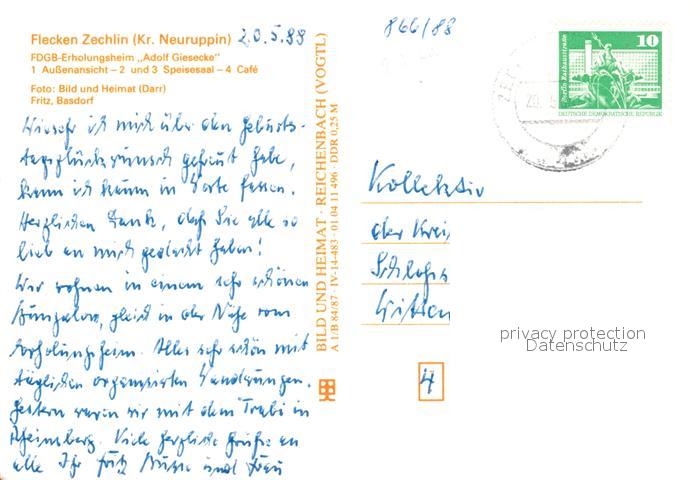 Flecken Zechlin (Kr. Neuruppin) 20.5.88
FDGB-Erholungsheim „Adolf Giesecke"
1 Außenansicht – 2 und 3 Speisesaal – 4 Café
Foto: Bild und Heimat (Darr)
Fritz, Basdorf
Wiesehr ich mich über den Geburts-
tagsglückwunsch gefreut habe,
kann ich kaum in Worte fassen.
Herzlichen Dank, daß Sie alle so
lieb an mich gedacht haben!
Wir wohnen in einem sehr schönen
Bungalow, gleich in der Nähe vom
Erholungsheim. Alles sehr schön mit
täglichen organisierten Wanderungen.
Gestern waren wir mit dem Trabi in
Rheinsberg. Viele herzliche Grüße an
alle Ihr Fritz und Frau
BILD UND HEIMAT · REICHENBACH (VOGTL)
A 1/B 84/87 · IV-14-483 · 01 04 11 496 · DDR 0,25 M
866/88
10
Berlin, Rathausstraße
DEUTSCHE DEMOKRATISCHE REPUBLIK
Kollektiv
der Krei
Schloß
Witten
4
privacy protection
Datenschutz